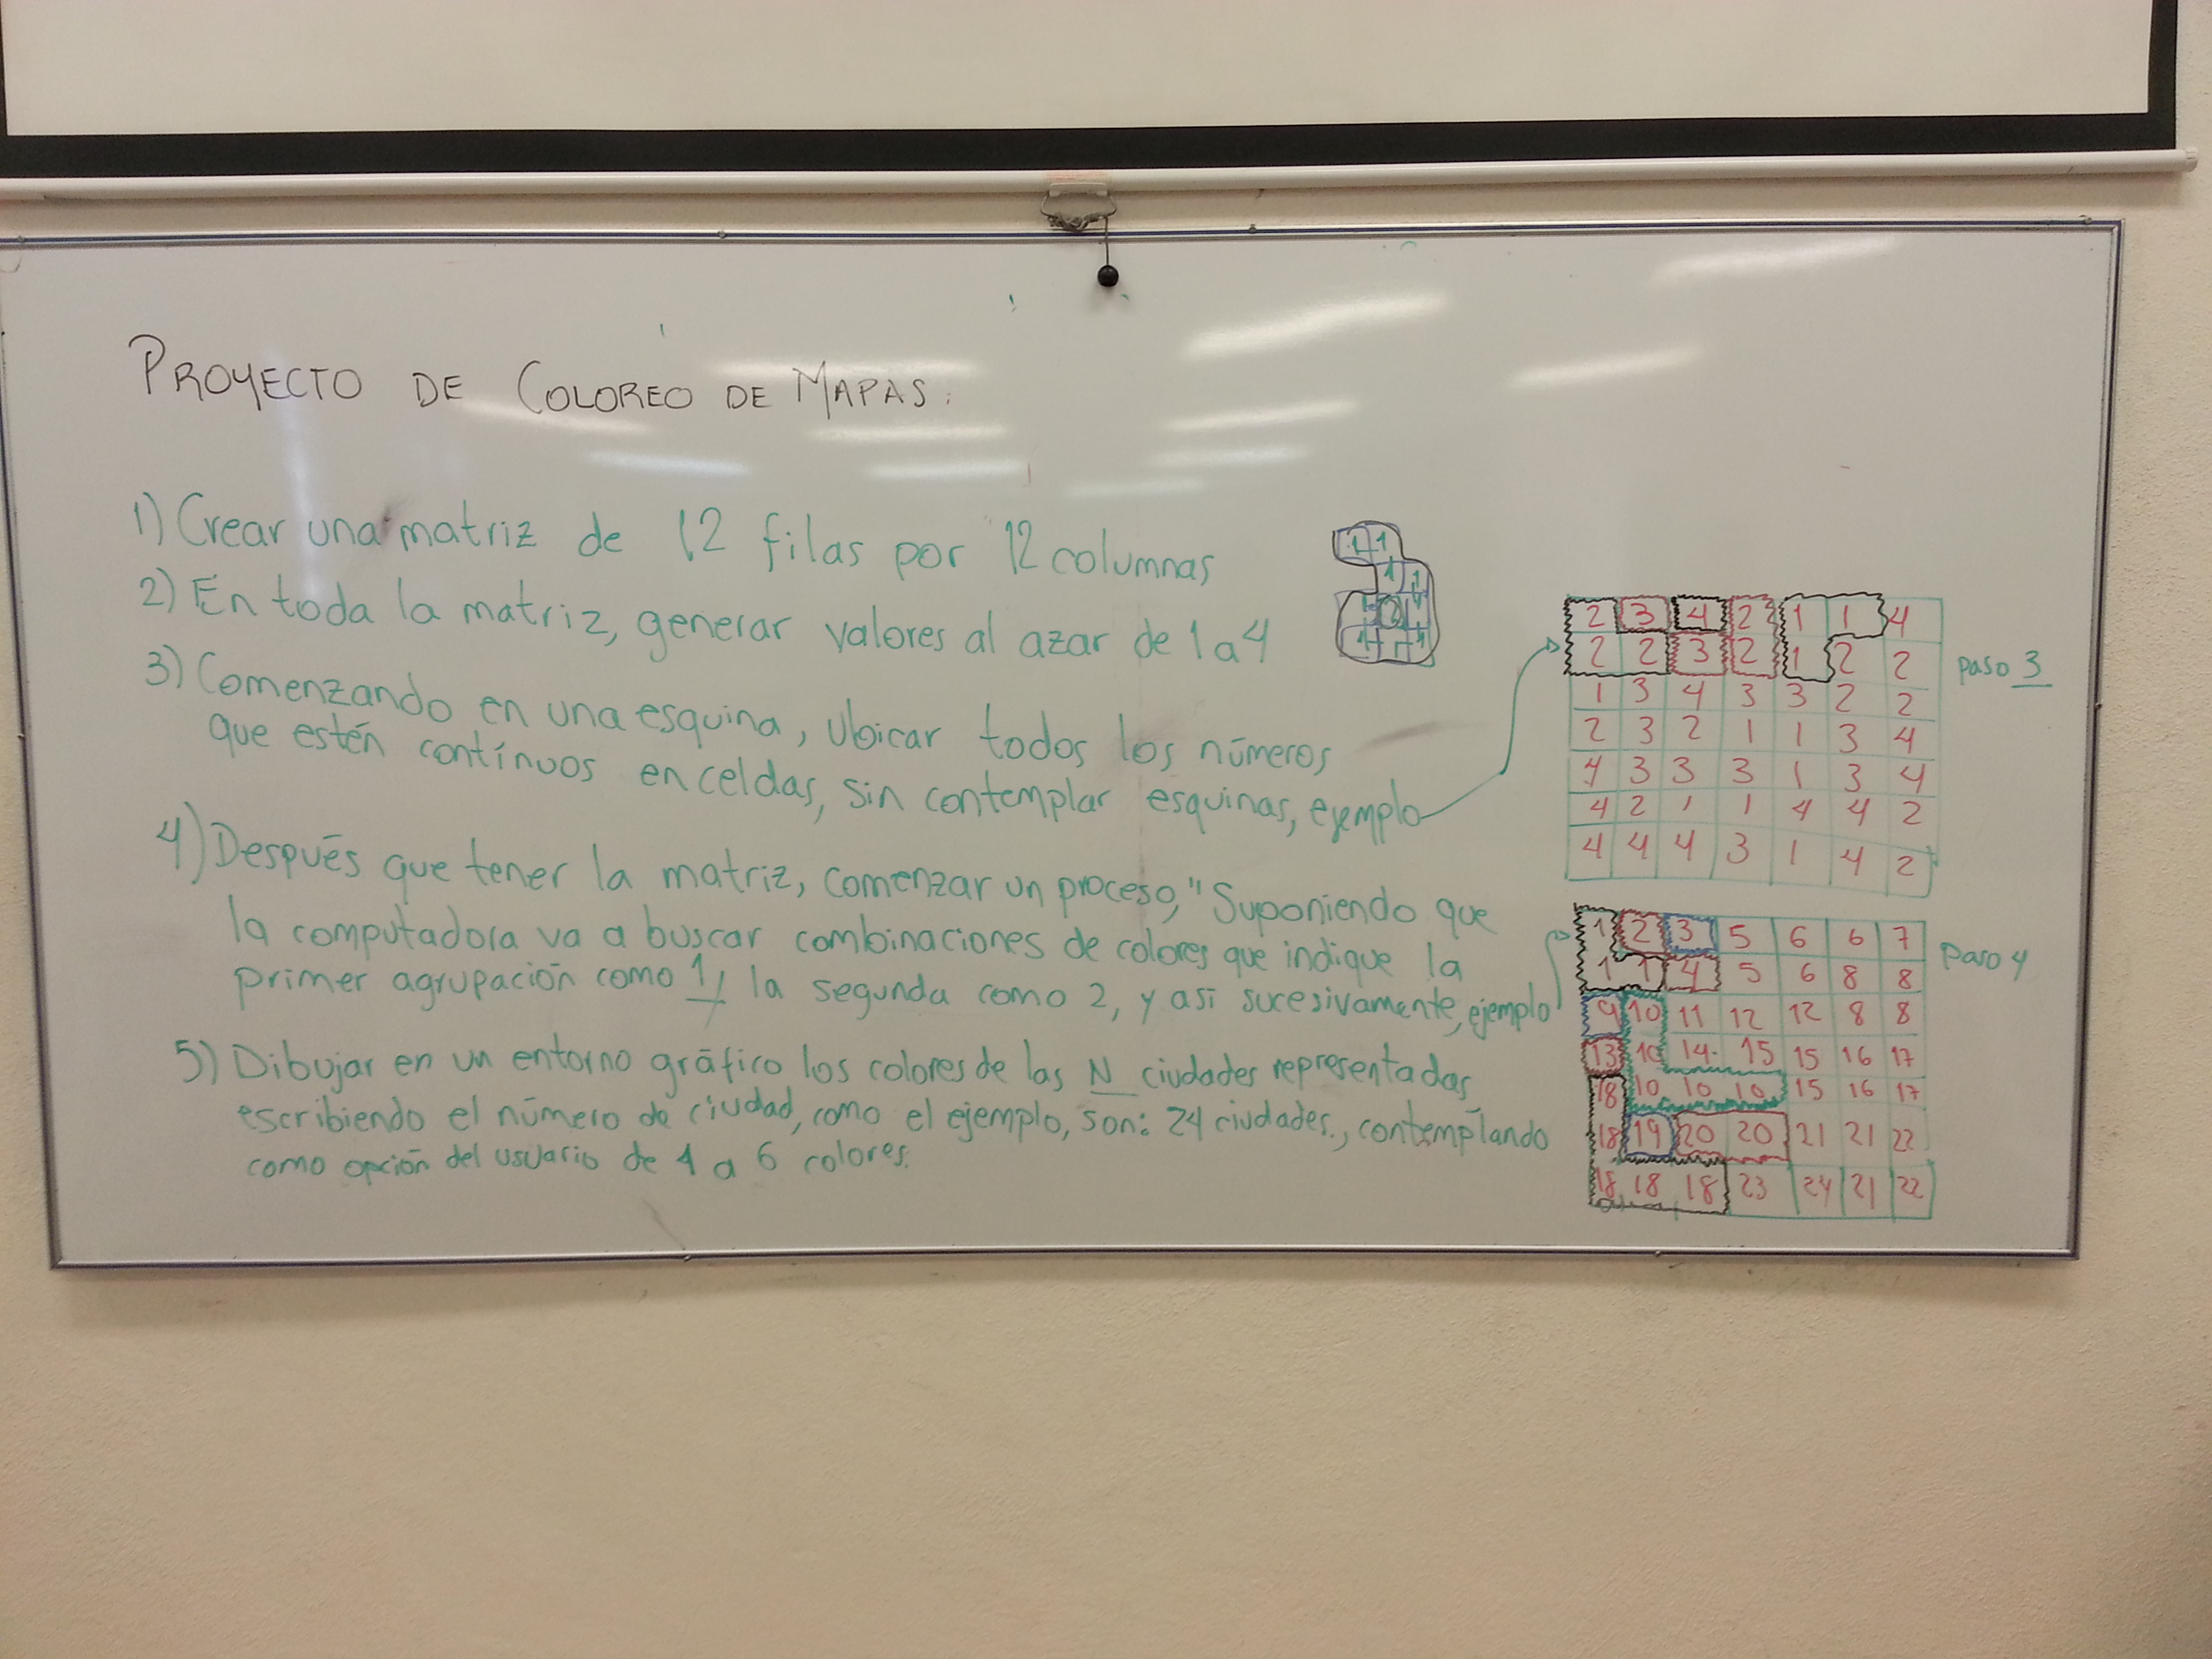 PROYECTO DE COLOREO DE MAPAS:
1) Crear una matriz de 12 filas por 12 columnas
2) En toda la matriz, generar valores al azar de 1 a 4
3) Comenzando en una esquina, ubicar todos los números
que estén contínuos en celdas, sin contemplar esquinas, ejemplo
4) Después que tener la matriz, comenzar un proceso, "Suponiendo que
la computadora va a buscar combinaciones de colores que indique la
primer agrupación como 1, la segunda como 2, y así sucesivamente, ejemplo
5) Dibujar en un entorno gráfico los colores de las N ciudades representadas
escribiendo el número de ciudad, como el ejemplo, son: 24 ciudades, contemplando
como opción del usuario de 4 a 6 colores.
1 1
1 1
2
2 3 4 2 1 1 4
2 2 3 2 1 2 2
paso 3
1 3 4 3 3 2 2
2 3 2 1 1 3 4
4 3 3 3 1 3 4
4 2 1 1 4 4 2
4 4 4 3 1 4 2
1 2 3 5 6 6 7
paso 4
1 1 4 5 6 8 8
9 10 11 12 12 8 8
13 10 14 15 15 16 17
18 10 10 10 15 16 17
18 19 20 20 21 21 22
18 18 18 23 24 21 22